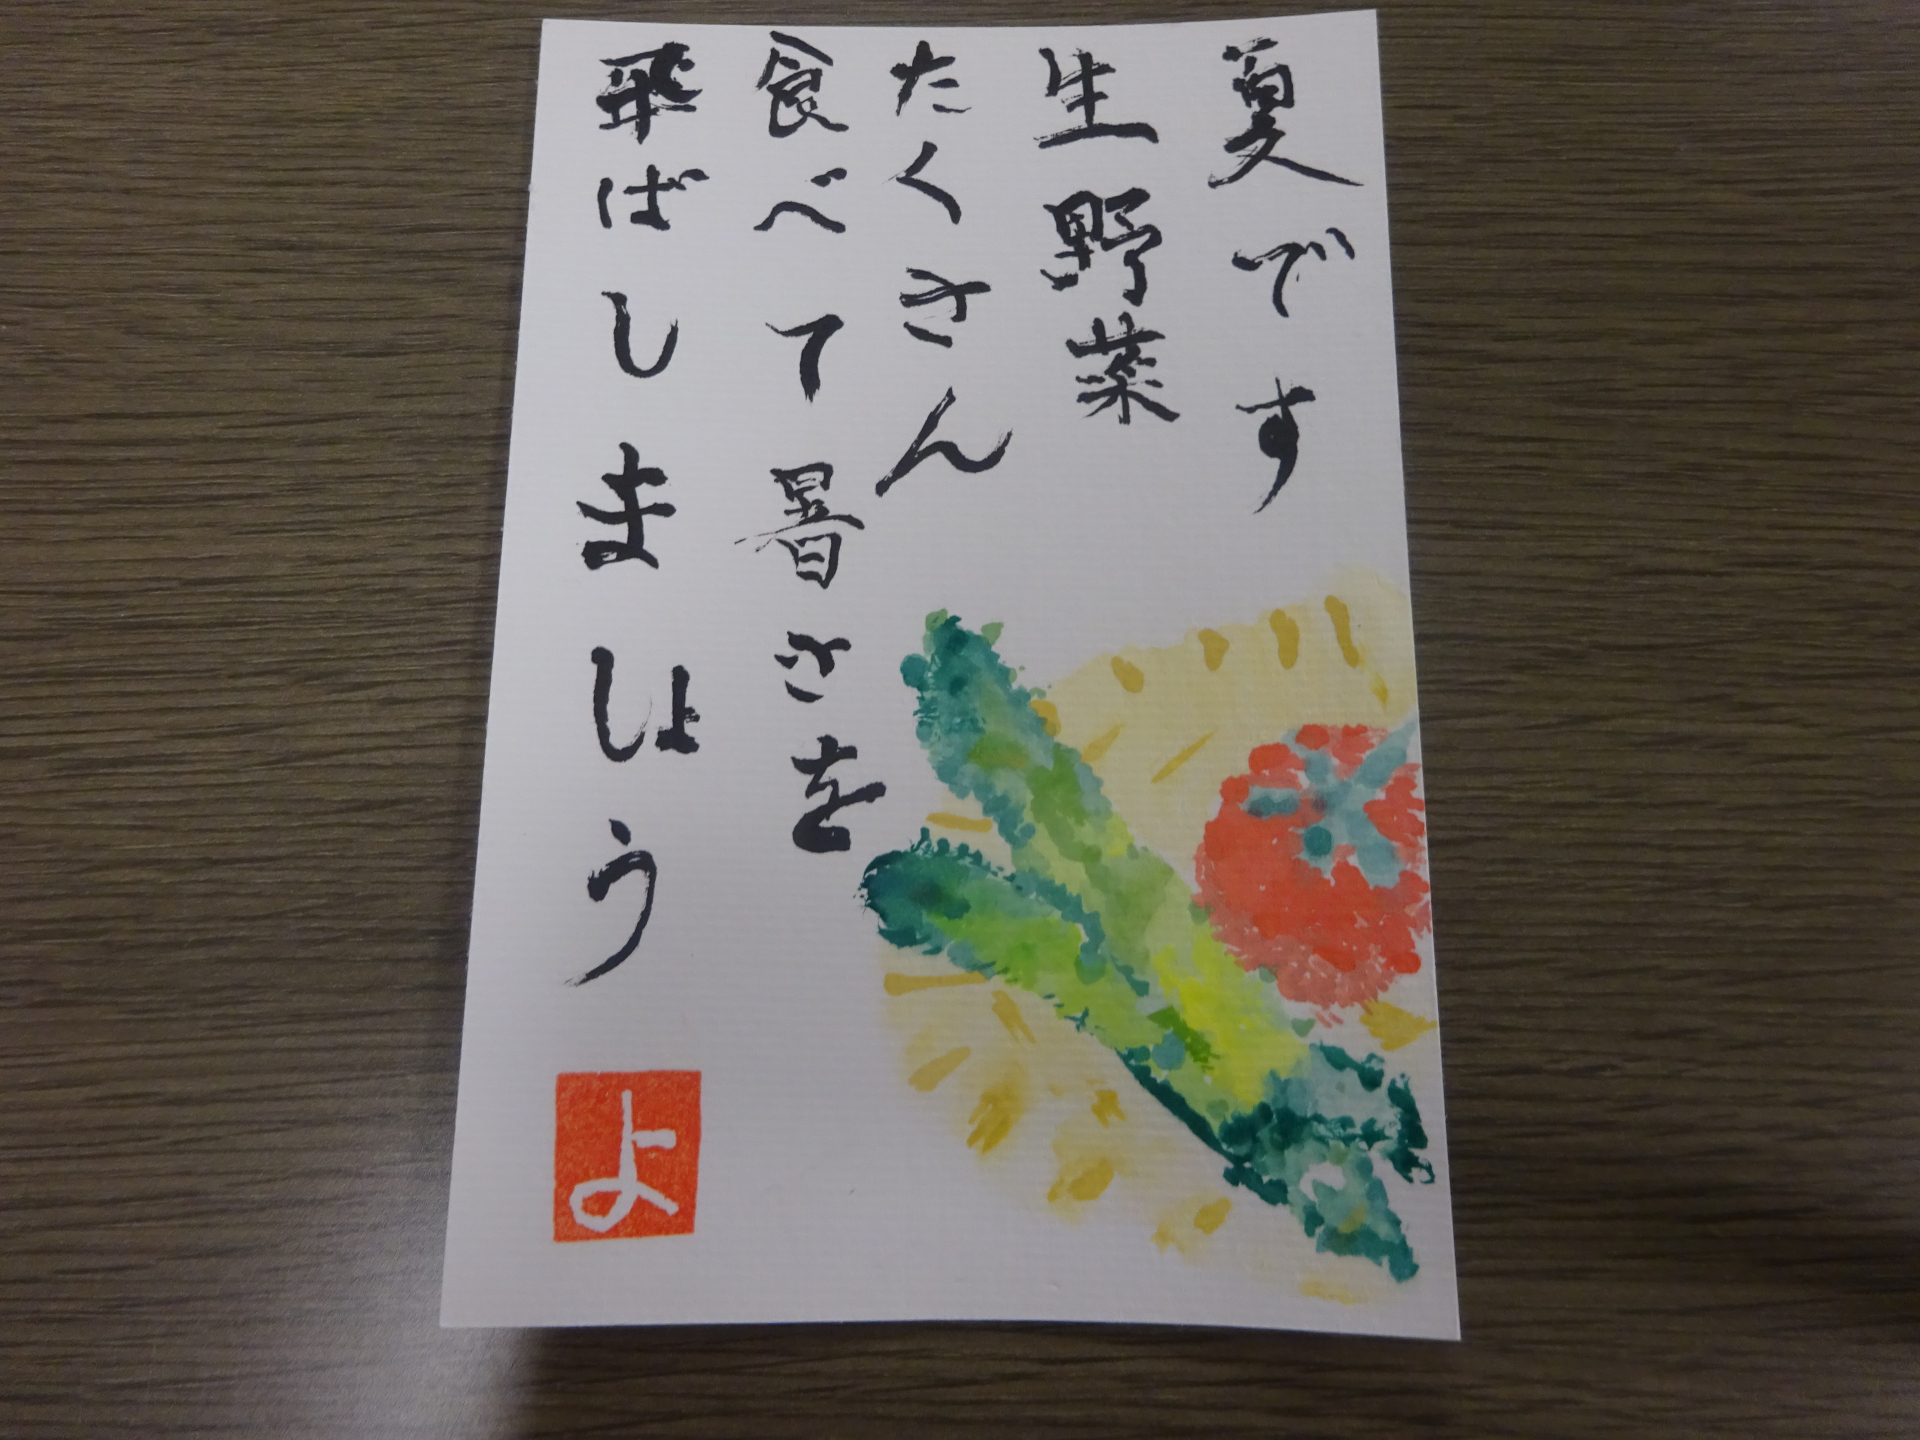 夏です
生野菜
たくさん
食べて暑さを
飛ばしましょう
よ